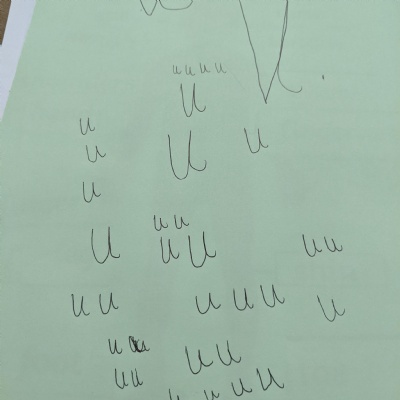 uuuu
u
u
u u u
u
uu
u uu uu
uu uuu u
uu uu
uu
u u u u